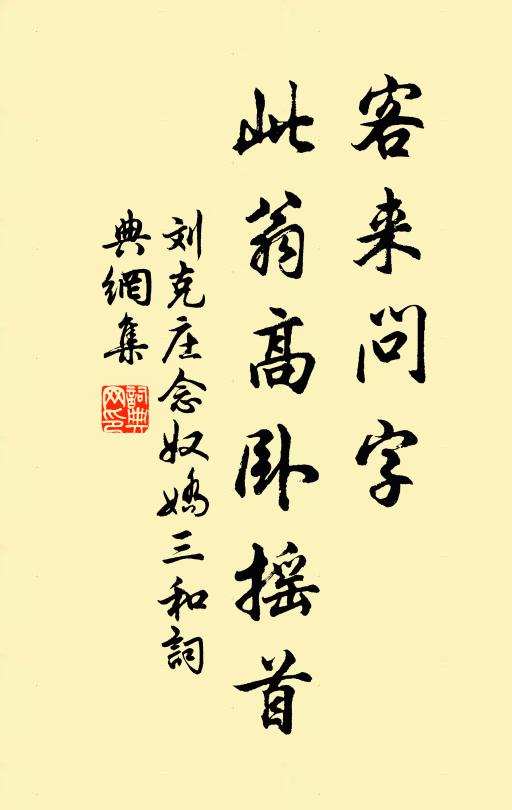 客来问字
此翁高卧摇首
刘克庄念奴嬌三和詞
典網集
詞典網印